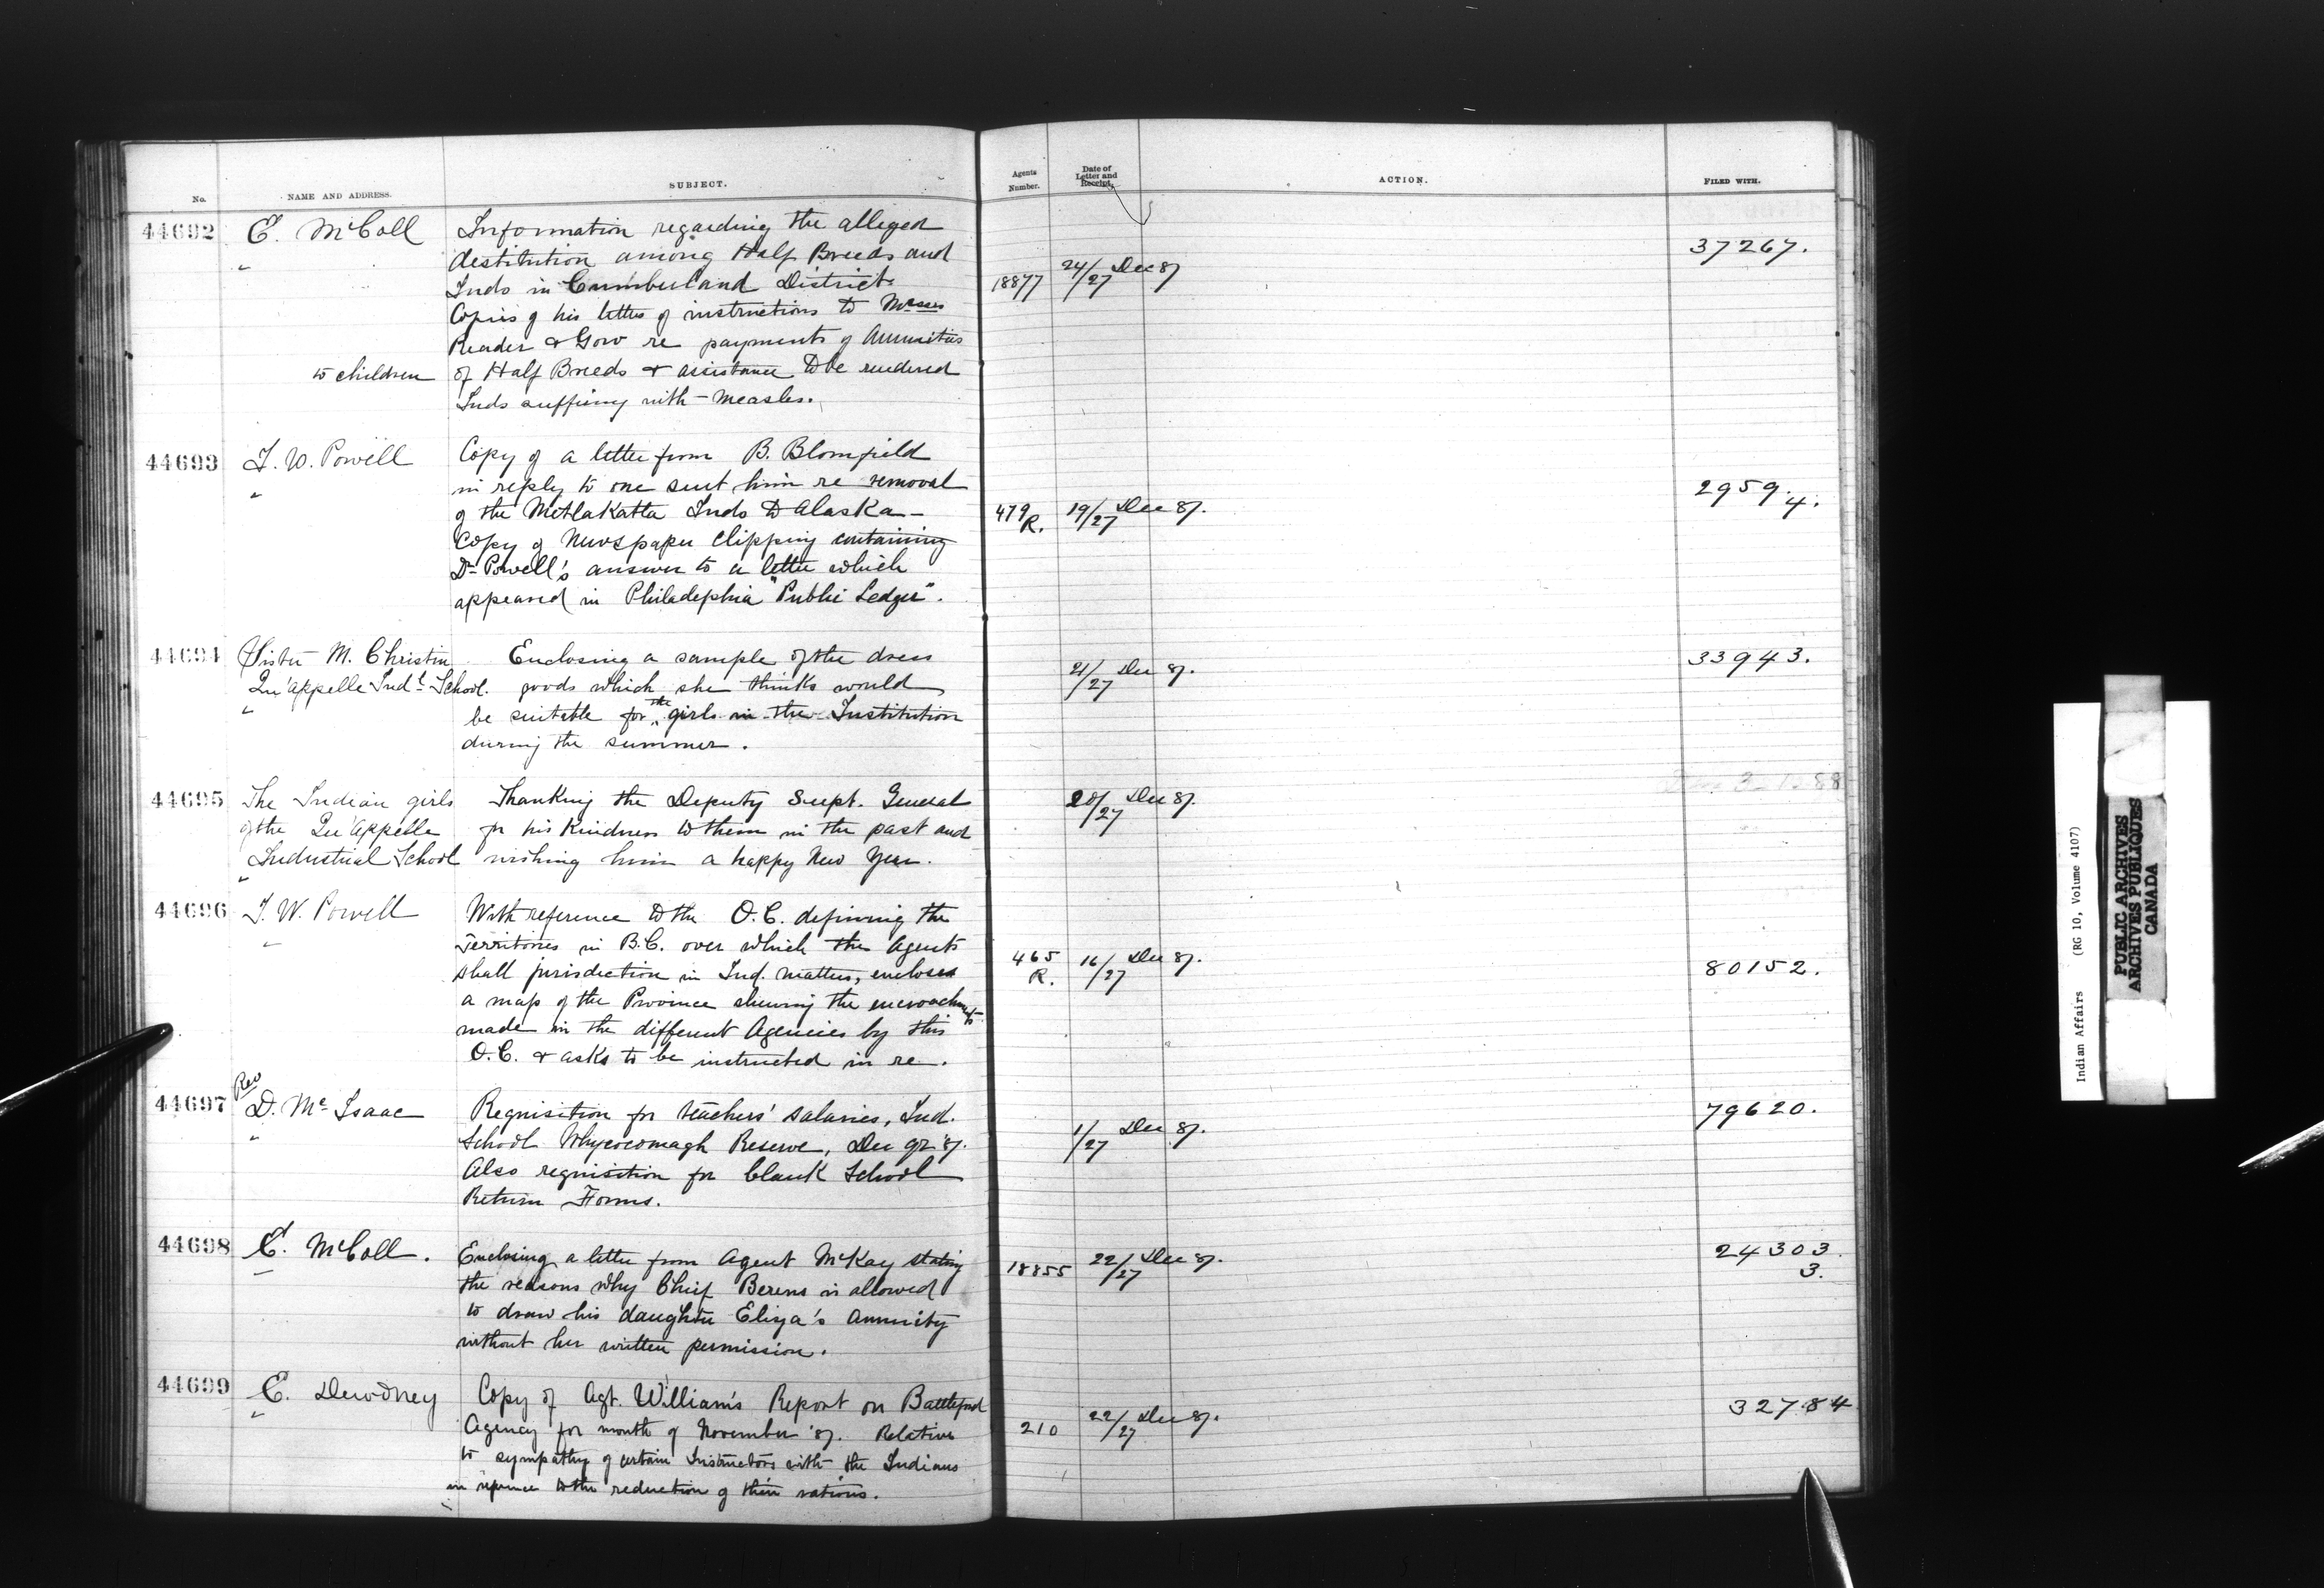 No. NAME AND ADDRESS. SUBJECT. Agents Number. Date of Letter and Receipt. ACTION. FILED WITH.
44692 E. McColl Information regarding the alleged
" destitution among Half Breeds and 37267.
Inds in Cumberland District. 18877 24/27 Dec 87
Copies of his letters of instructions to Messrs
Reader & Gow re payments of Annuities
to children of Half Breeds & assistance to be rendered
Inds suffering with measles.
44693 I. W. Powell Copy of a letter from B. Blomfield
" in reply to one sent him re removal 2959.4.
of the Metlakatla Inds to Alaska - 479 R. 19/27 Dec 87.
Copy of Newspaper Clipping containing
Dr Powell's answer to a letter which
appeared in Philadephia "Public Ledger".
44694 Sister M. Christin Enclosing a sample of the dress 33943.
Qu'appelle Indl School. goods which she thinks would 21/27 Dec 87.
" be suitable for the girls in the Institution
during the summer.
44695 The Indian girls Thanking the Deputy Supt. General 20/27 Dec 87.
of the Qu'Appelle for his Kindness to them in the past and
Industrial School wishing him a happy New Year.
"
44696 I. W. Powell With reference to the O.C. defining the
" Territories in B.C. over which the Agents 465 R. 16/27 Dec 87.
shall jurisdiction in Ind. matters, encloses 80152.
a map of the Province shewing the encroachments
made in the different Agencies by this
O.C. & asks to be instructed in re.
44697 Rev D. Mc Isaac Requisition for teachers' salaries, Ind. 79620.
" School Whycocomagh Reserve, Dec qr '87. 1/27 Dec 87.
Also requisition for blank School
Return Forms.
44698 E. McColl. Enclosing a letter from Agent McKay stating 18855 22/27 Dec 87. 24303.3.
the reasons why Chief Berens is allowed
to draw his daughter Eliza's Annuity
without her written permission.
44699 E. Dewdney Copy of Agt. William's Report on Battleford 32784
" Agency for month of November '87. Relative 210 22/27 Dec 87.
to sympathy of certain Instructors with the Indians
in reference to the reduction of their rations.
Indian Affairs (RG 10, Volume 4107)
PUBLIC ARCHIVES
ARCHIVES PUBLIQUES
CANADA